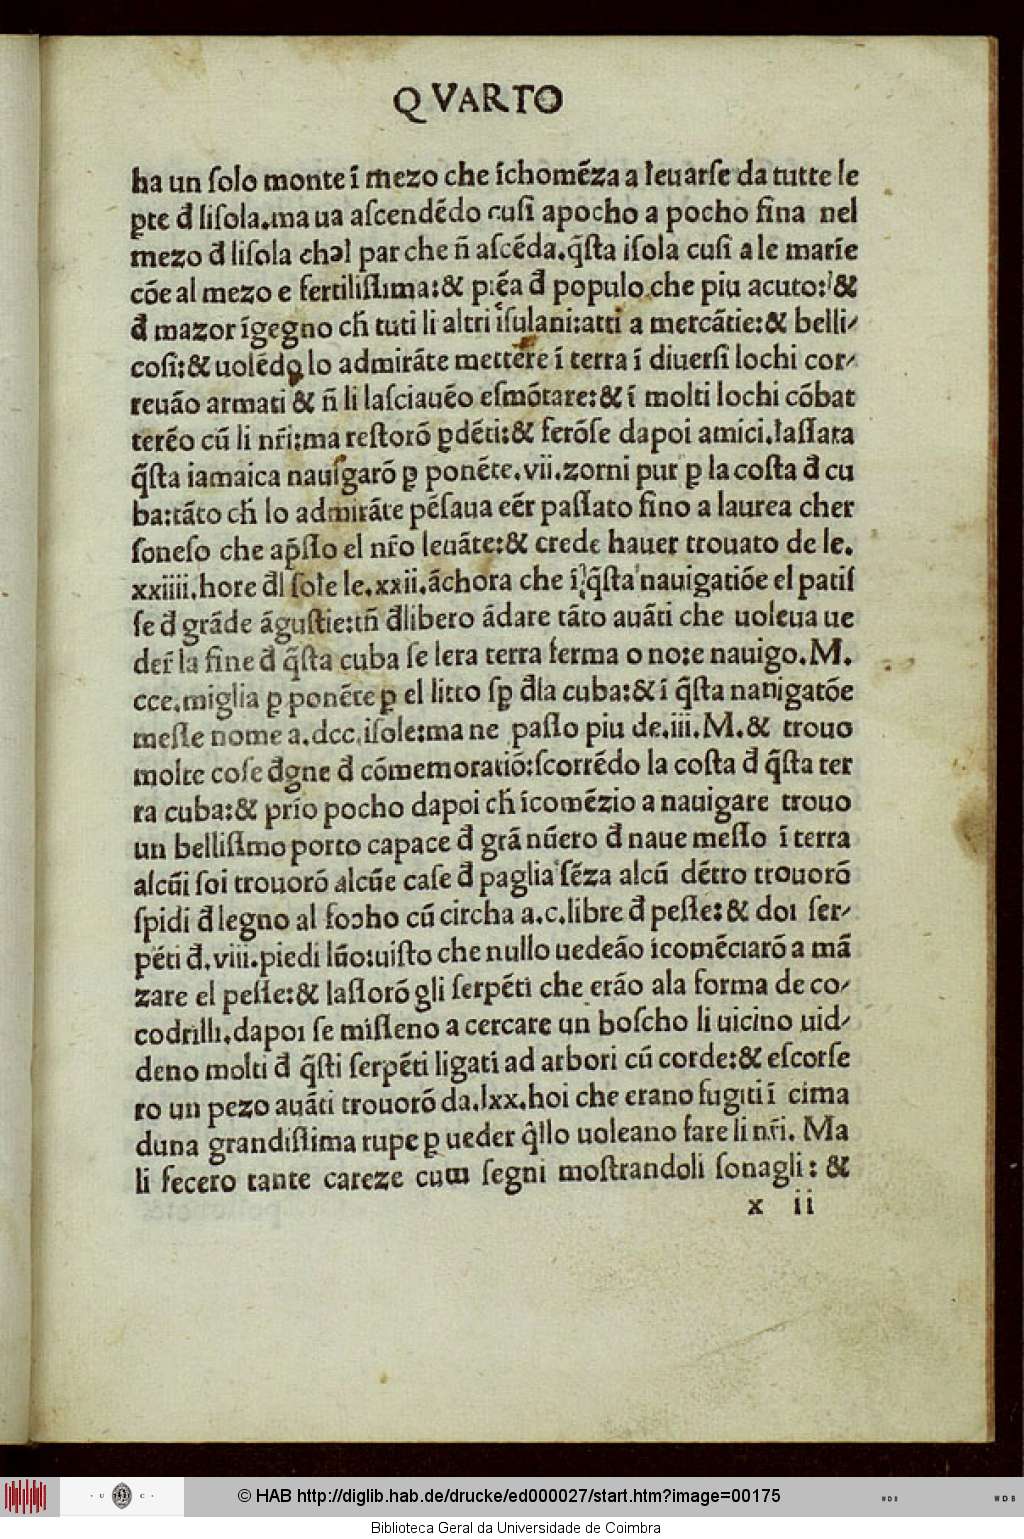 QVARTO
ha un ſolo monte ī mezo che īchomēza a leuarſe da tutte le
ꝑte đ liſola.ma ua aſcendēdo cuſi apocho a pocho fina nel
mezo đ liſola chel par che ñ aſcēda.q̄ſta iſola cuſi a le marīe
cōe al mezo e fertiliſſima:& piēa đ populo che piu acuto:&
đ mazor īgegno ch̄ tuti li altri iſulani:atti a mercātie:& belli-
coſi:& uolēdo lo admirāte mettere ī terra ī diuerſi lochi cor-
reuāo armati & ñ li laſciauēo eſmōtare:& ī molti lochi cōbat
terēo cū li nr̄i:ma reſtorō ꝑdēti:& ferōſe dapoi amici.laſſata
q̄ſta iamaica nauigarō ꝑ ponēte.vii.zorni pur ꝑ la coſta đ cu
ba:tāto ch̄ lo admirāte pēſaua eēr paſſato fino a laurea cher
ſoneſo che ap̄ſſo el nr̄o leuāte:& crede hauer trouato de le.
xxiiii.hore đl ſole le.xxii.āchora che ī q̄ſta nauigatiōe el patiſ
ſe đ grāde āguſtie:tñ đlibero ādare tāto auāti che uoleua ue
der̄ la fine đ q̄ſta cuba ſe lera terra ferma o no:e nauigo.M.
cce.miglia ꝑ ponēte ꝑ el litto ſꝑ đla cuba:& ī q̄ſta nanigatōe
meſſe nome a.dcc.iſole:ma ne paſſo piu de.iii.M.& trouo
molte coſe đgne đ cōmemoratiō:ſcorrēdo la coſta đ q̄ſta ter
ra cuba:& prīo pocho dapoi ch̄ īcomēzio a nauigare trouo
un belliſſimo porto capace đ grā nūero đ naue meſſo ī terra
alcūi ſoi trouorō alcūe caſe đ paglia ſēza alcū dētro trouorō
ſpidi đ legno al focho cū circha a.c.libre đ peſſe:& doi ſer-
pēti đ.viii.piedi lūo:uiſto che nullo uedeāo icomēciarō a mā
zare el peſſe:& laſſorō gli ſerpēti che erāo ala forma de co-
codrilli.dapoi ſe miſſeno a cercare un boſcho li uicino uid-
deno molti đ q̄ſti ſerpēti ligati ad arbori cū corde:& eſcorſe
ro un pezo auāti trouorō da.lxx.hoi che erano fugiti ī cima
duna grandiſſima rupe ꝑ ueder q̄llo uoleano fare li nr̄i. Ma
li fecero tante careze cum ſegni moſtrandoli ſonagli: &
x ii
· U C ·
© HAB http://diglib.hab.de/drucke/ed000027/start.htm?image=00175
WDB
WDB
Biblioteca Geral da Universidade de Coimbra